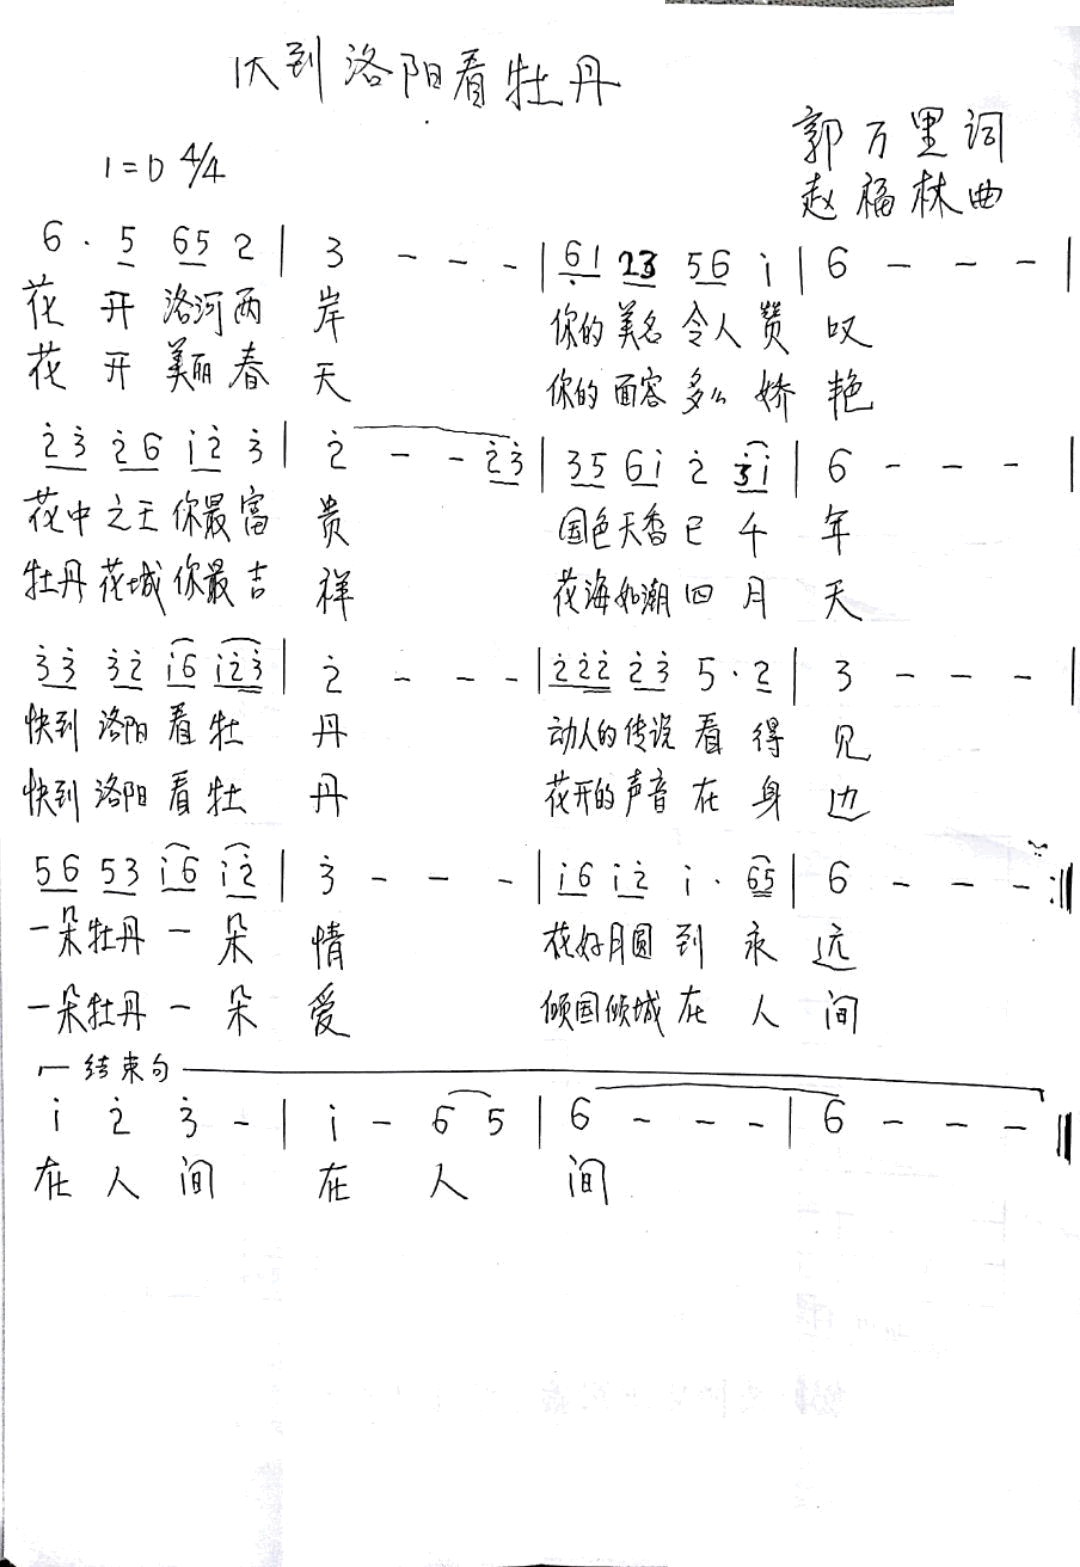 快到洛阳看牡丹
郭万里词
1=D 4/4
赵福林曲
6 · 5 65 2 | 3 - - - | 6̣1 23 56 i | 6 - - - |
花 开 洛河 两 岸 你的 美名 令人 赞 叹
花 开 美丽 春 天 你的 面容 多么 娇 艳
2̇3̇ 2̇6 i2̇ 3̇ | 2̇ - - 2̇3̇ | 35 6i 2̇ 3̇i | 6 - - - |
花中之王你最富 贵 国色天香已 千 年
牡丹花城你最吉 祥 花海如潮四 月 天
3̇3̇ 3̇2̇ i6 i2̇3̇ | 2̇ - - - | 2̇2̇2̇ 2̇3̇ 5 · 2̇ | 3 - - - |
快到 洛阳 看 牡 丹 动人的传说 看 得 见
快到 洛阳 看 牡 丹 花开的声音 在 身 边
56 53 i6 i2̇ | 3̇ - - - | i6 i2̇ i · 65 | 6 - - - :‖
一朵牡丹 一 朵 情 花好月圆 到 永 远
一朵牡丹 一 朵 爱 倾国倾城 在 人 间
结束句
i 2̇ 3̇ - | i - 6 5 | 6 - - - | 6 - - - ‖
在 人 间 在 人 间